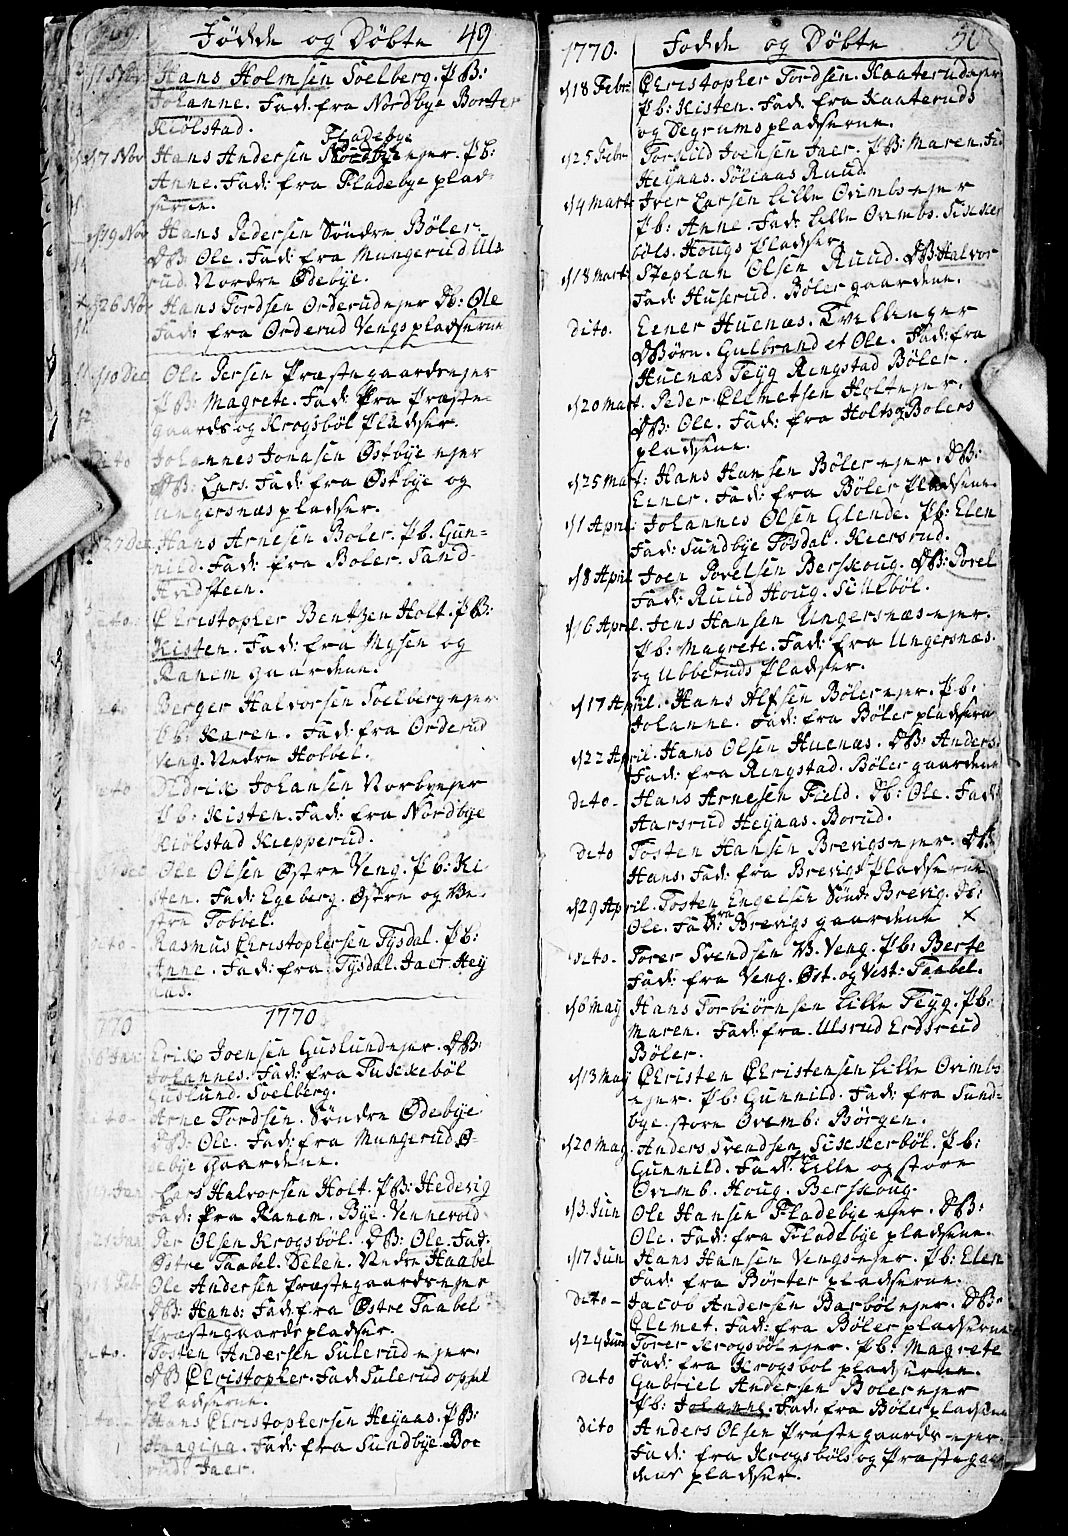 Fødde og Døbte 49
Hans Holmsen Soelberg. P B:
Johanne. Fad: fra Nordbye Borter
Kiølstad.
Fladebye
17 Nov Hans Andersen ejer. P b:
Anne. Fad: fra Fladebye plad-
serne.
19 Nov Hans Pedersen Søndre Bøler
D B: Ole. Fad: fra Mungerud Uls
rud. Nordre Ødebye.
26 Nov Hans Tordsen Orderud ejer D b: Ole
Fad: fra Orderud Vengs pladserne
10 Dec Ole Persen Præstegaards ejer
P B: Magrete. Fad: fra Præste-
gaards og Krogsbøl Pladser.
Dito Johannes Jonasen Østbye ejer
D B: Lars. Fad: fra Østbye og
Ungersnæs pladser.
27 Dec Hans Arnesen Boler. P b. Gun-
nild. Fad: fra Boler. Sand-
Hvidsteen.
Christopher Bentzen Holt. P B:
Kisten. Fad: fra Mysen og
Ranem gaardene.
Berger Halvorsen Soelberg ejer
P b: Karen. Fad: fra Orderud
Veng. Nedre Hobbel.
Didrik Johansen Norbyejer
P b: Kisten. Fad: fra Nordbye
Kiølstad Kiepperud.
Ole Olsen Østre Veng. P b: Ki
sten. Fad: Egeberg. Østre og Ve-
stre Tobbel.
Dito- Rasmus Christophersen Tysdal. P b:
Anne. Fad: fra Tysdal. Jaer Hey
aas.
1770
Erik Joensen Guslund ejer. D B:
Johannes. Fad: fra Tuskebøl
Guslund. Soelberg.
Arne Tordsen. Søndre Ødebye
D B: Ole. Fad: fra Mungerud Ø-
debye gaardene.
Lars Halvorsen Holt. P B: Hedevig
Fad: fra Ranem. Bye. Vennevold
Per Olsen Krogsbøl. D B: Ole. Fad:
Østre Taabel. Delen. Nedre Haabel
Ole Andersen Præstegaards ejer
D B: Hans: Fad: fra Østre Taabel
Præstegaards pladser.
Dito. Tosten Andersen Sulerud ejer.
D B Christopher. Fad Sulerud oppel
pladserne.
Hans Christophersen Heyaas. P B:
Fad: fra Sundbye Bo-
rud. Jaer.
1770. Fødde og Døbte 50
18 Febr Christopher Tordsen. Kaaterud ejer
P b: Kisten. Fad. fra Kaateruds
og Degrums pladserne.
25 Febr Torkild Joensen Jaer. P B: Maren. Fad
Heyaas. Søliaas Ruud.
4 Mart Iver Larsen Lille Ovimbs ejer
P b: Anne. Fad: Lille Ovimbs. Siskier
bøls. Hougs Pladser
18 Mart Stephan Olsen Ruud. D B Halvor
Fad: Huserud. Bøler gaardene.
Dito. Einer Huenæs. Tvillinger
D Børn. Gulbrand et Ole. Fad: fra
Huenæs Teyg Ringstad Bøler.
20 Mart. Peder Clemetsen Holt ejer.
D B: Ole. Fad: fra Holts og Bolers
pladsene.
25 Mart: Hans Hansen Bøler ejer. D B:
Einer. Fad: fra Bøler Pladsene.
1 April Johannes Olsen Glende. P b: Elen
Fad: Sundbye Tosdal. Kiersrud.
8 April Joen Povelsen Berskoug. D B: Povel
Fad: Ruud Houg. Skulbøl.
16 April. Jens Hansen Ungersnæs ejer.
P b: Magrete. Fad: fra Ungersnæs
og Ubberuds Pladser.
17 April. Hans Alfsen Bøler ejer. P b:
Johanne. Fad: fra Bøler pladserne
22 April. Hans Olsen Huenæs. D B: Anders
Fad: fra Ringstad. Bøler gaardene
Dito- Hans Arnesen Field. D b: Ole. Fad:
Aarsrud Heyaas. Borud.
Dito Tosten Hansen Brevigs ejer. D B
Hans. Fad: fra Brevigs Pladserne
29 April. Tosten Engelsen Sønd: Brevig. D b:
Ole. Fad: fra Brevigs gaardene X
Dito- Torer Svendsen V. Veng. P b: Berte
Fad: fra Veng. Øst. og Vest: Taabel.
6 May Hans Torbiørnsen Lille Teyg. P b:
Maren. Fad: fra Ulsrud Erdsrud
Bøler.
13 May Christen Christensen Lille Ovimbs
ejer. P b: Gunnild. Fad: fra Sund-
bye. store Ovimb: Børgen.
20 May Anders Svendsen Siskierbøl. P b:
Gunnild. Fad: fra Lille og store
Ovimb. Houg. Berskoug.
3 Jun Ole Hansen Fladebye ejer. D B:
Ole. Fad: fra Fladebye pladsene.
17 Jun Hans Hansen Vengs ejer. P b: Elen
Fad: fra Børter pladserne.
Dito- Jacob Andersen Barbøl ejer. D B:
Clemet. Fad: fra Bøler pladserne
24 Jun Torer Krogsbøl ejer. P b: Magrete
Fad: fra Krogsbøl pladserne.
Dito Gabriel Andersen Boler ejer
P b: Johanne. Fad: fra Bøler pladsene
Dito Anders Olsen Præstegaards ejer.
Fad: fra Krogsbøls og Præstegaar
dens pladser.